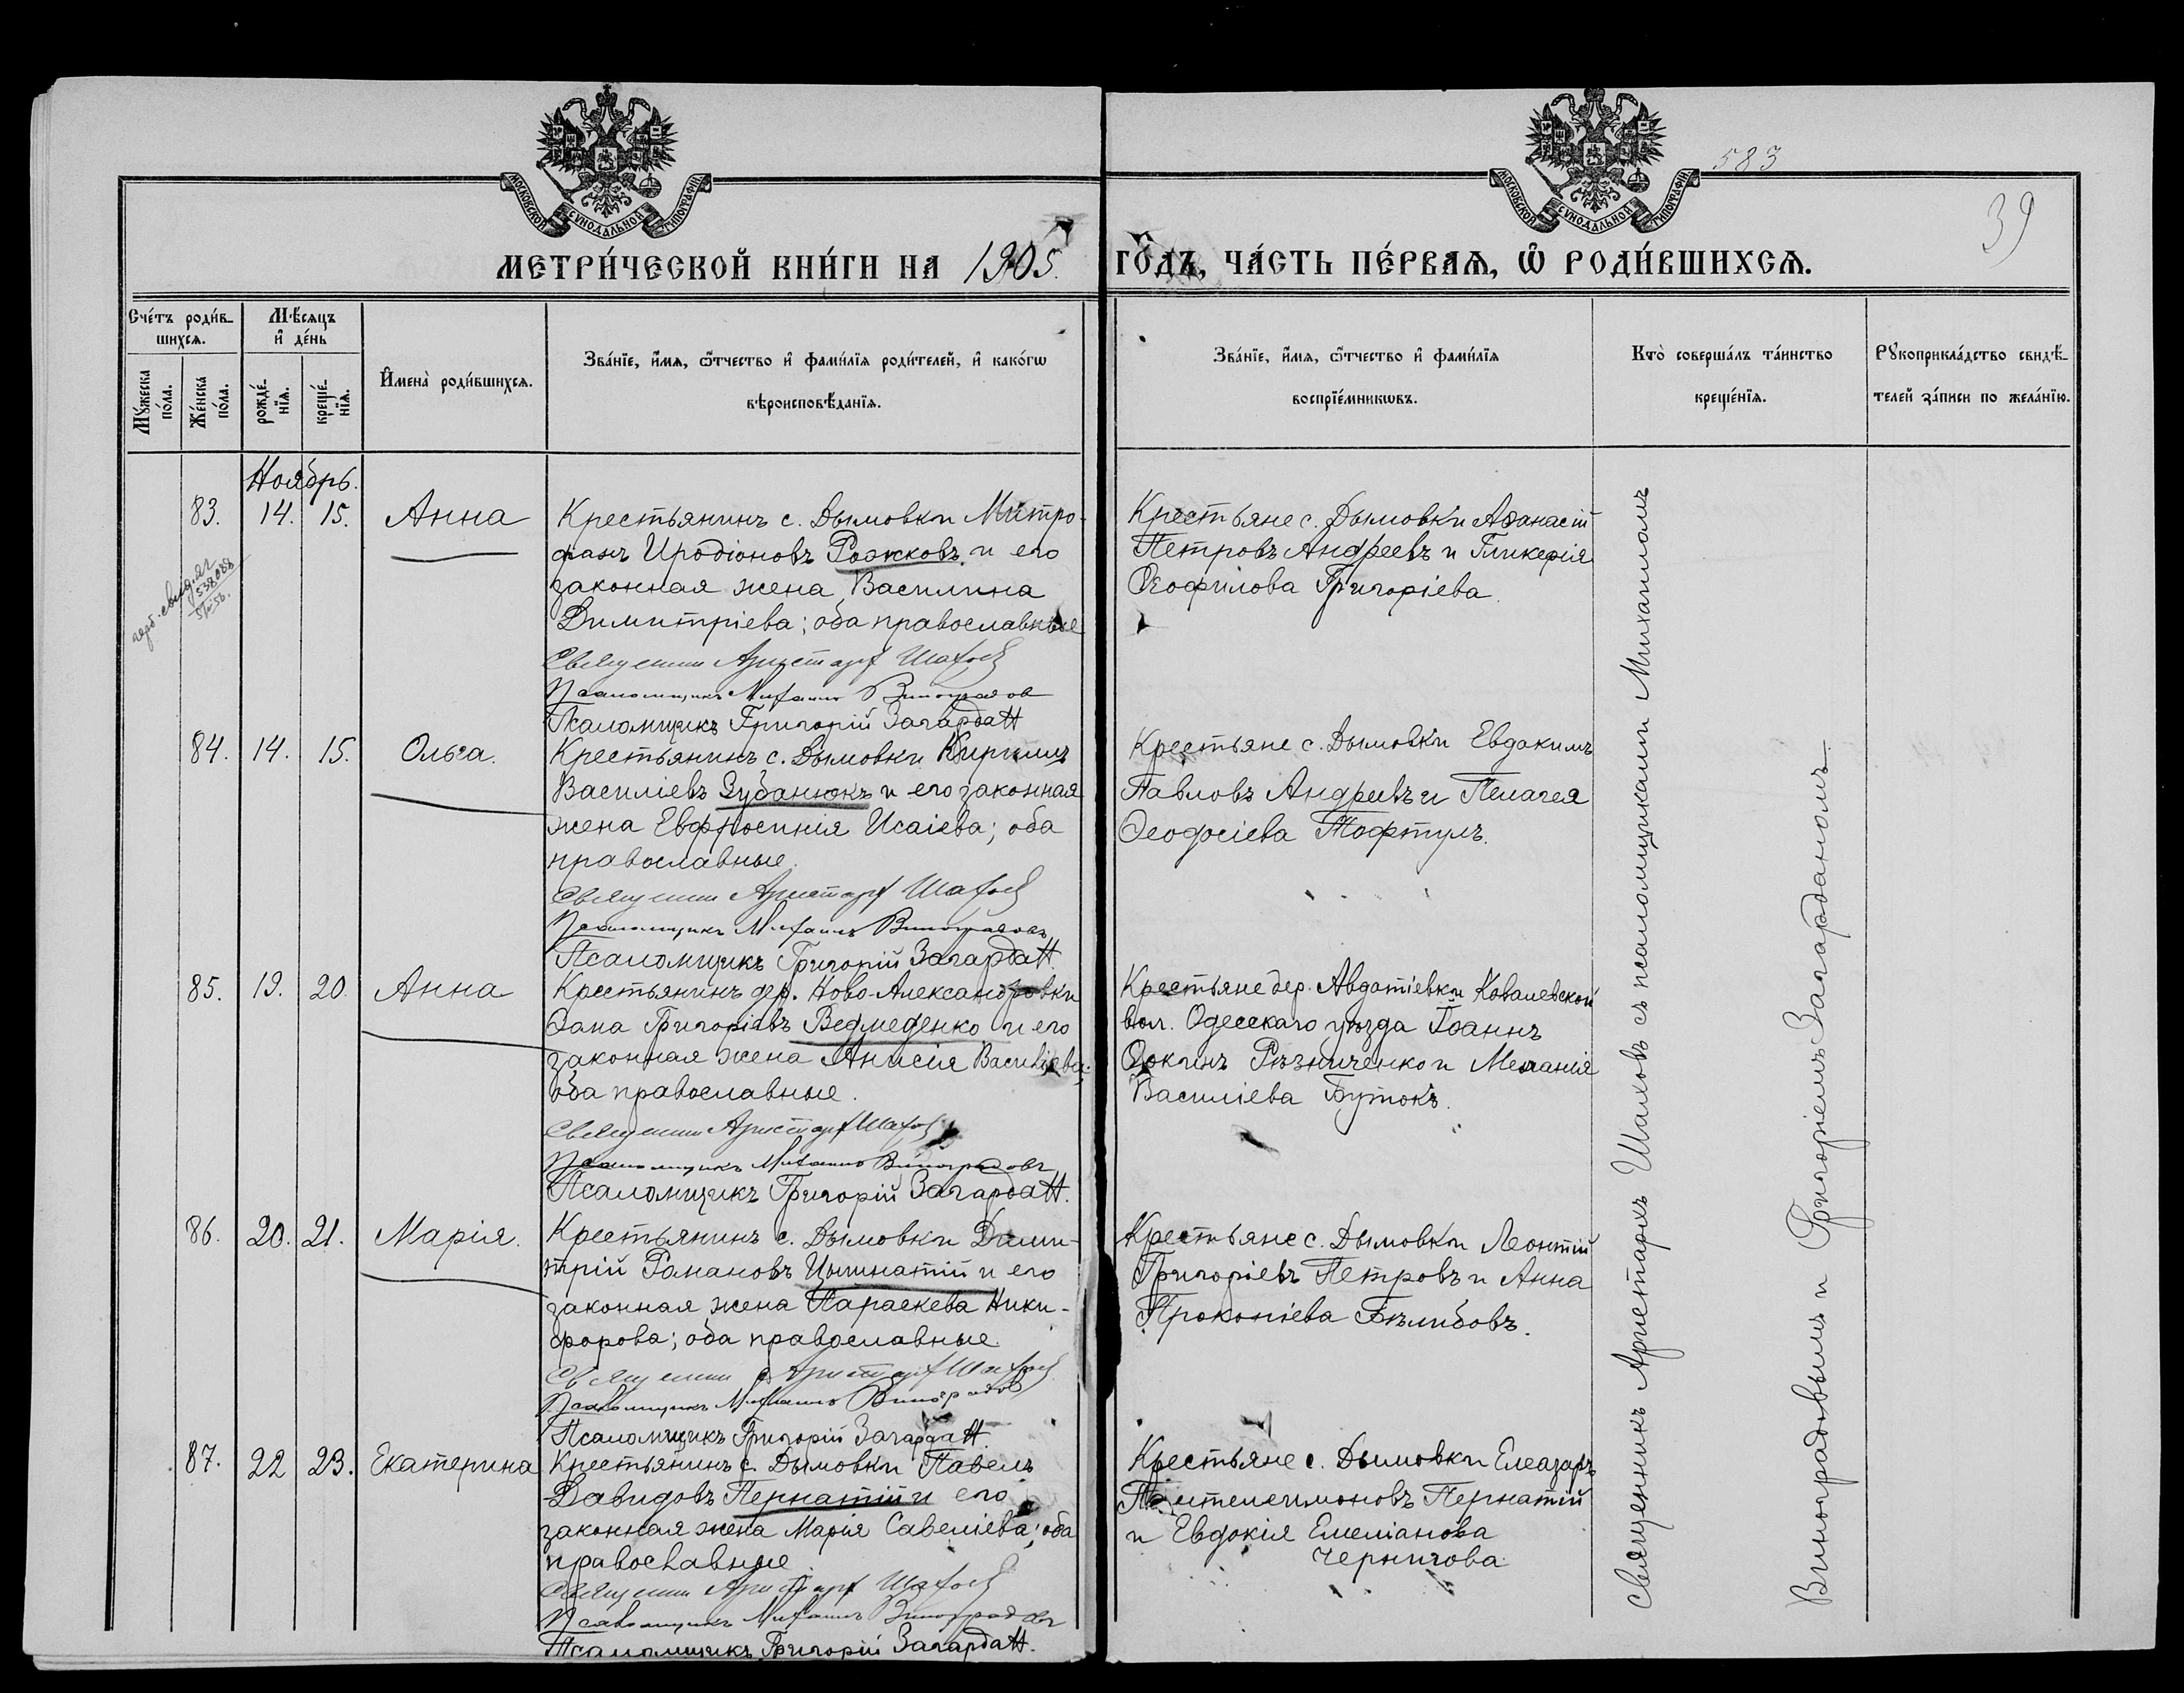 МОСКОВСКОЙ СѴНОДАЛЬНОЙ ТИПОГРАФІИ
МОСКОВСКОЙ СѴНОДАЛЬНОЙ ТИПОГРАФІИ
583
39
МЕТРИ́ЧЕСКОЙ КНИ́ГИ НА 1905. ГО́ДЪ, ЧА́СТЬ ПЕ́РВАѦ, Ѡ РОДИ́ВШИХСѦ.
Сче́тъ роди́в-
шихсѧ.
Мѣ́сѧцъ
и҆ де́нь
Мꙋ́жеска
по́ла.
Же́нска
по́ла.
рожде́-
нїѧ.
креще́-
нїѧ.
И҆мена̀ роди́вшихсѧ.
Зва́нїе, и҆́мѧ, ѻ҆́тчество и҆ фами́лїѧ роди́телей, и҆ како́гѡ
вѣроисповѣ́данїѧ.
Зва́нїе, и҆́мѧ, ѻ҆́тчество и҆ фами́лїѧ
воспрїе́мникѡвъ.
Кто̀ соверша́лъ та́инство
креще́нїѧ.
Рꙋкоприкла́дство свидѣ́-
телей за́писи по жела́нїю.
Ноябрь.
83. 14. 15. Анна
Крестьянинъ с. Дымовки Митро-
фанъ Иродіоновъ Рожковъ и его
законная жена Василина
Димитріева; оба православные
Священник Аристарх Шахов
Псаломщикъ Михаилъ Виноградов
Псаломщикъ Григорій Загардан
Крестьяне с. Дымовки Аѳанасій
Петровъ Андреевъ и Гликерія
Ѳеофилова Григоріева.
84. 14. 15. Ольга.
Крестьянинъ с. Дымовки Кириллъ
Василіевъ Зубанюкъ и его законная
жена Евфросинія Исаіева; оба
православные.
Священник Аристарх Шахов
Псаломщикъ Михаилъ Виноградовъ
Псаломщикъ Григорій Загардан
Крестьяне с. Дымовки Евдокимъ
Павловъ Андреевъ и Пелагея
Ѳеодосіева Тофтулъ.
85. 19. 20. Анна
Крестьянинъ дер. Ново-Александровки
Ѳома Григоріевъ Ведмеденко и его
законная жена Анисія Василіева;
оба православные.
Священник Аристарх Шахов
Псаломщикъ Михаилъ Виноградовъ
Псаломщикъ Григорій Загардан.
Крестьяне дер. Авдотіевки Ковалевской
вол. Одесскаго уѣзда Іоаннъ
Ѳокинъ Рѣзниченко и Меланія
Василіева Бутокъ.
86. 20. 21. Марія.
Крестьянинъ с. Дымовки Дими-
трій Романовъ Цыганатій и его
законная жена Параскева Ники-
форова; оба православные.
Священник Аристарх Шахов
Псаломщикъ Михаилъ Виноградов
Псаломщикъ Григорій Загардан
Крестьяне с. Дымовки Леонтій
Григоріевъ Петровъ и Анна
Прокопіева Бѣлибовъ.
87. 22 23. Екатерина
Крестьянинъ с. Дымовки Павелъ
Давидовъ Пернатій и его
законная жена Марія Савеліева; оба
православные
Священник Аристарх Шахов
Псаломщикъ Михаилъ Виноградовъ
Псаломщикъ Григорій Загардан.
Крестьяне с. Дымовки Елеазаръ
Пантелеимоновъ Пернатій
и Евдокія Емеліанова
Чернигова.
Священникъ Аристархъ Шаховъ съ псаломщиками Михаиломъ
Виноградовымъ и Григоріемъ Загарданомъ